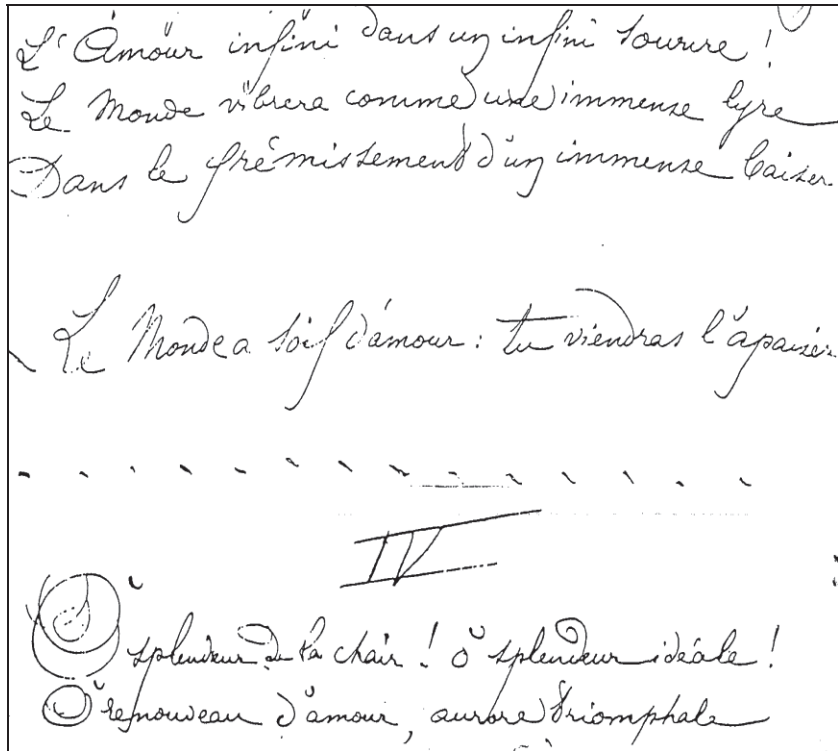 L'Amour infini dans un infini sourire !
Le Monde vibrera comme une immense lyre
Dans le frémissement d'un immense baiser
– Le Monde a soif d'amour : tu viendras l'apaiser.
. . . . . . . . . . . . . . .
IV
Ô splendeur de la chair ! ô splendeur idéale !
Ô renouveau d'amour, aurore triomphale